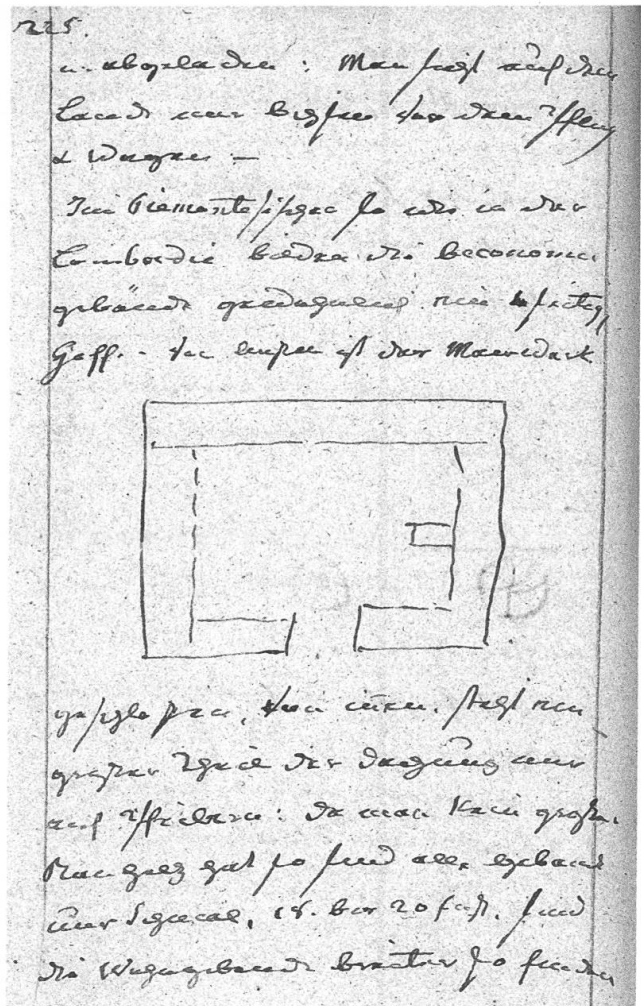 225.
u. abgeladen: Man sieht auf dem
Lande nur Ochsen vor dem Pflug
& Wagen —
Im Piemontesischen so wie in der
Lombardie bilden die Oeconomie
gebäude gewöhnlich ein
Hoff. - Von außen ist das Mauerwerk
geschlossen, von innen steht ein
großer Theil der Dachung nur
auf Pfeilern: da man kein großes
Bauholz hat so sind alle Gebäude
nur schmal, 18. bis 20 fuß. sind
die Wohngebäude breiter so finden